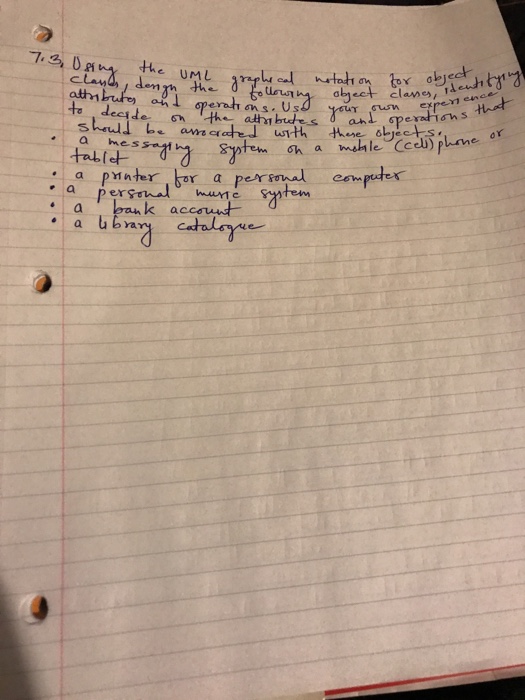 7.3, Using the UML graphical notation for object
classes, design the following object classes, identifying
attributes and operations. Use your own experience
to decide on the attributes and operations that
should be associated with these objects.
• a messaging system on a mobile (cell) phone or
tablet
• a printer for a personal computer
• a personal music system
• a bank account
• a library catalogue